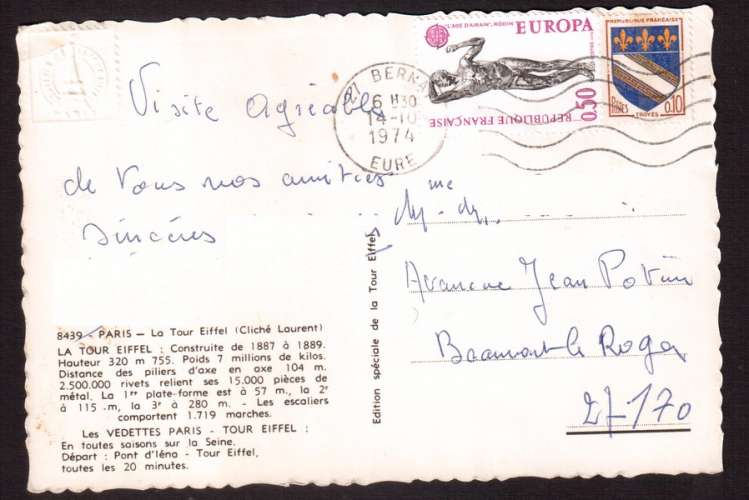 Visite agréable
de vous nos amitiés
sincères
8439 - PARIS — La Tour Eiffel (Cliché Laurent)
LA TOUR EIFFEL : Construite de 1887 à 1889.
Hauteur 320 m 755. Poids 7 millions de kilos.
Distance des piliers d'axe en axe 104 m.
2.500.000 rivets relient ses 15.000 pièces de
métal. La 1re plate-forme est à 57 m., la 2e
à 115 m, la 3e à 280 m. - Les escaliers
comportent 1.719 marches.
Les VEDETTES PARIS - TOUR EIFFEL :
En toutes saisons sur la Seine.
Départ : Pont d'Iéna - Tour Eiffel,
toutes les 20 minutes.
Edition spéciale de la Tour Eiffel
"L'AGE D'AIRAIN", RODIN EUROPA
0,50
REPUBLIQUE FRANÇAISE
REPUBLIQUE FRANÇAISE
POSTES 0,10
TROYES
27 BERNAY
6 H30
14-10
1974
EURE
Jean Potin
Beaumont le Roger
27170